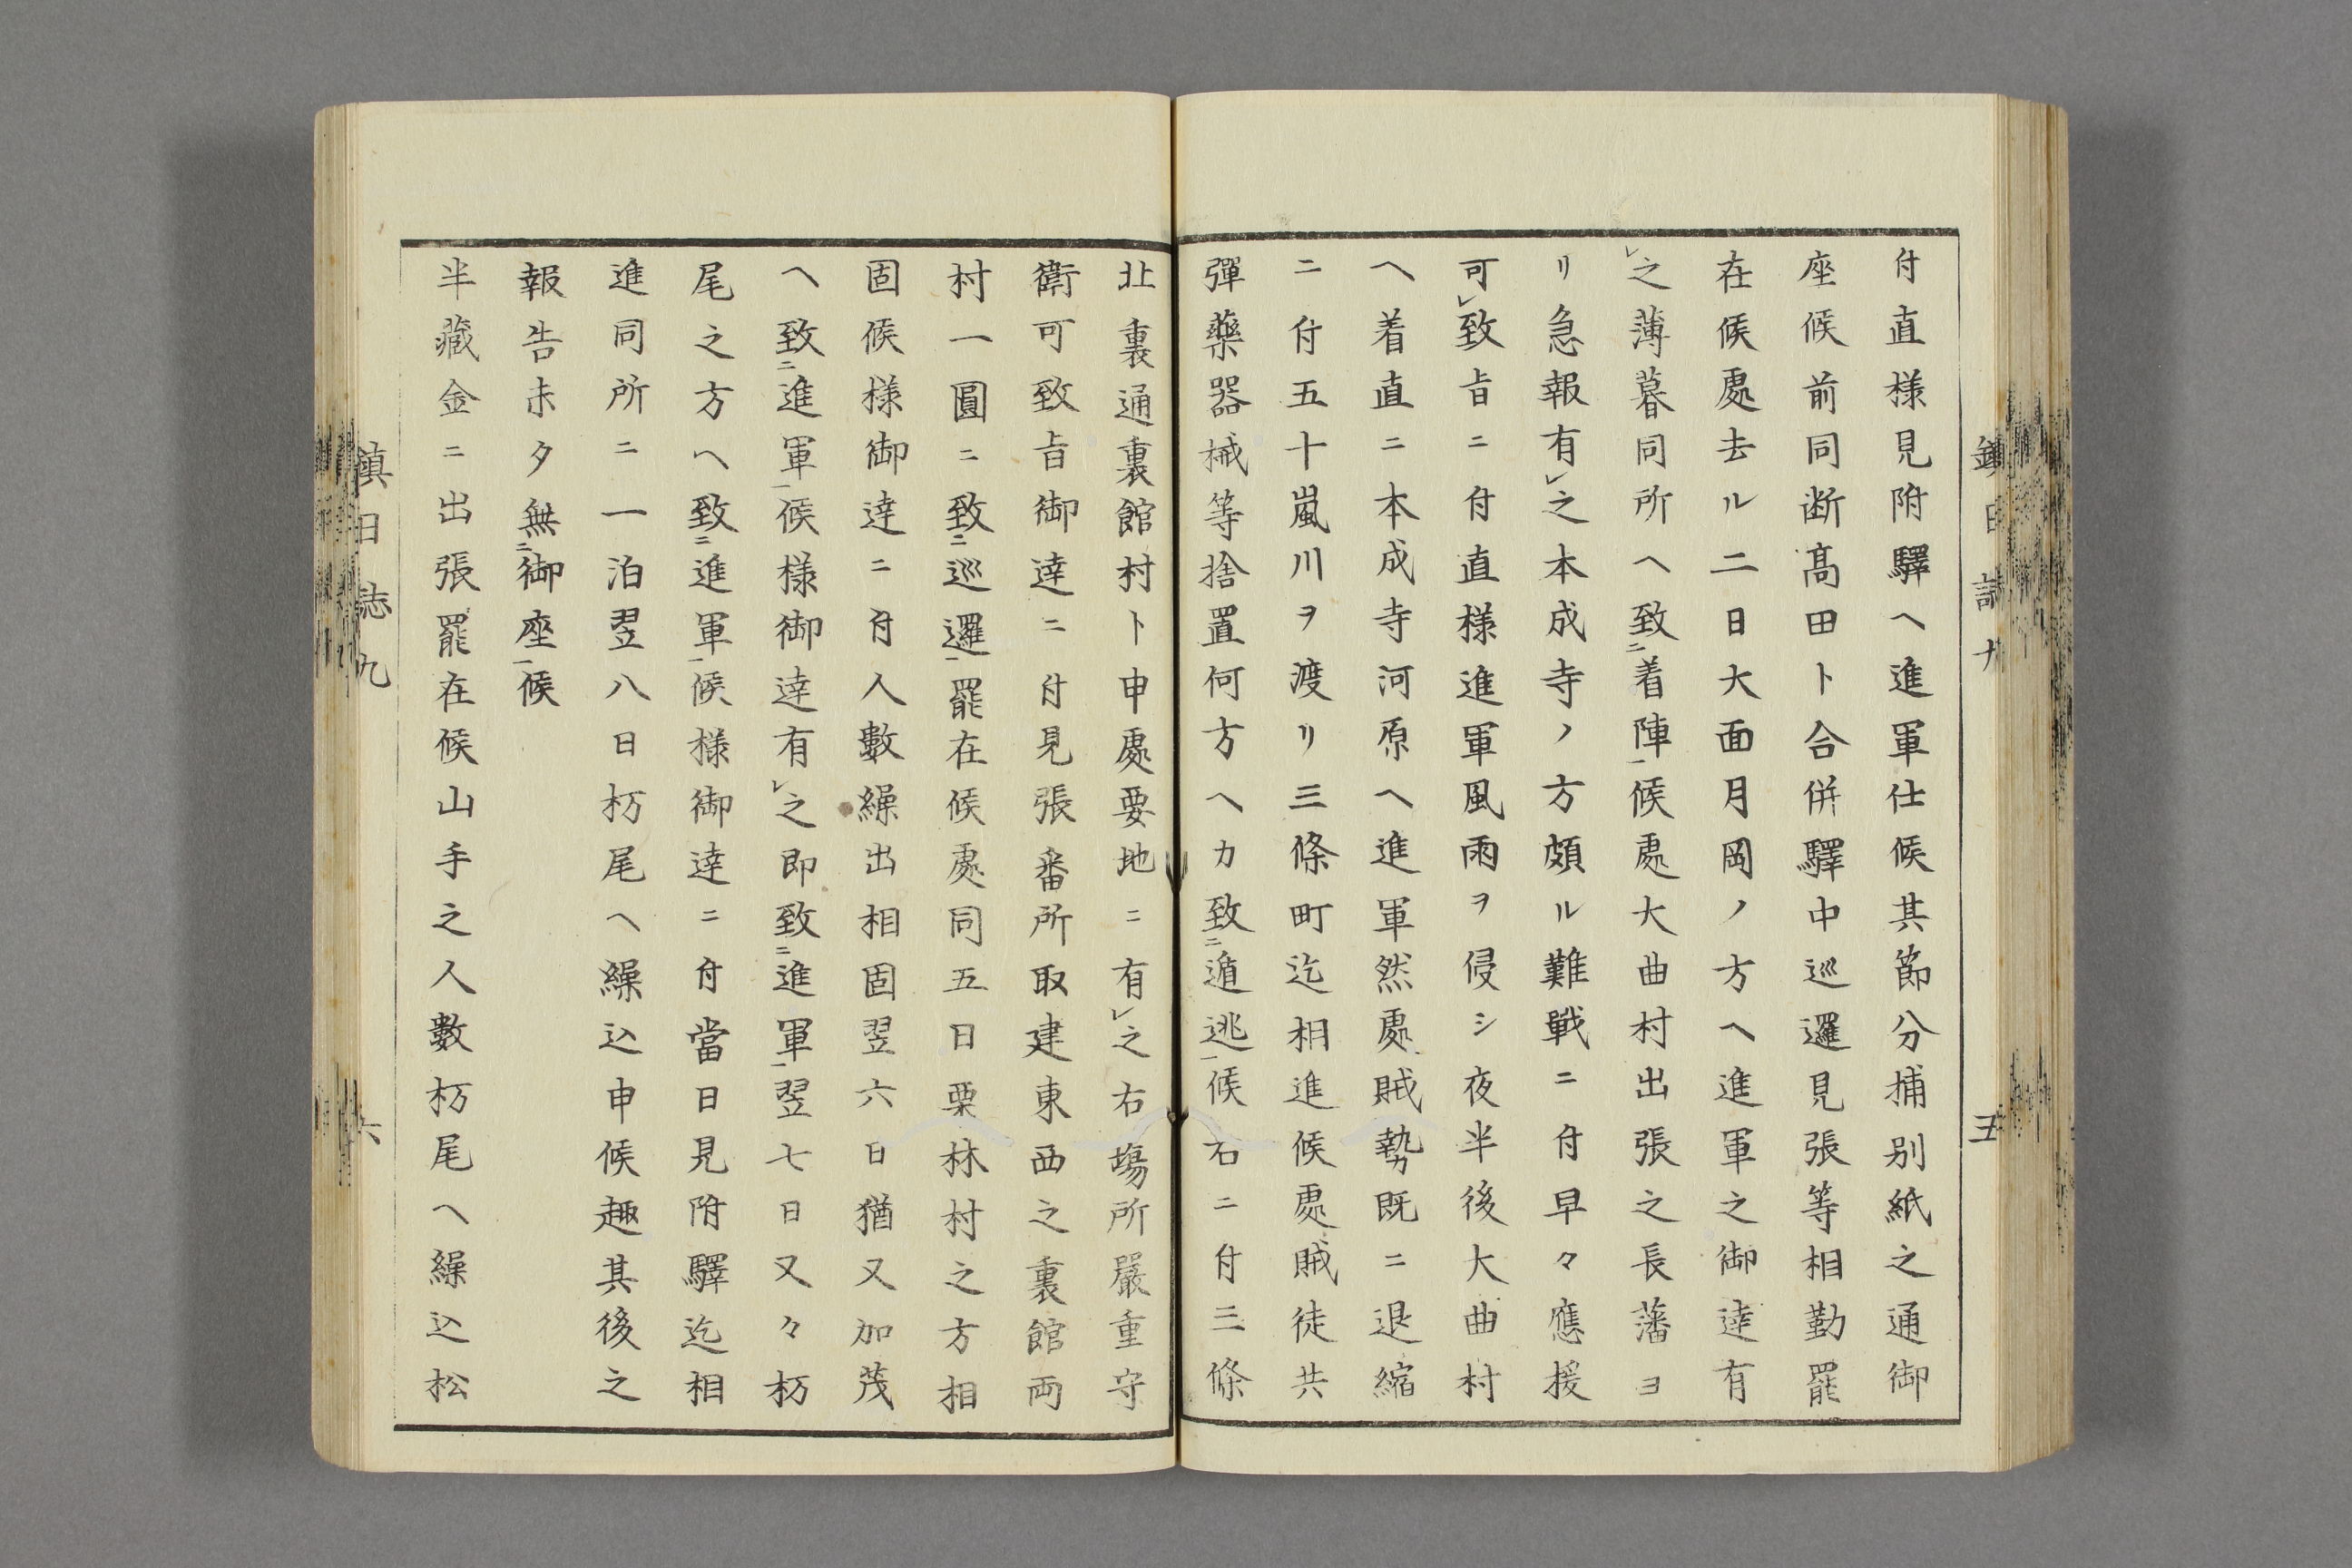 付直様見附驛ヘ進軍仕候其節分捕別紙之通御
座候前同断髙田ト合併驛中巡邏見張等相勤罷
在候處去ル二日大面月岡ノ方ヘ進軍之御達有
レ之薄暮同所ヘ致二着陣一候處大曲村出張之長藩ヨ
リ急報有レ之本成寺ノ方頗ル難戰ニ付早々應援
可レ致旨ニ付直様進軍風雨ヲ侵シ夜半後大曲村
ヘ着直ニ本成寺河原ヘ進軍然處賊勢既ニ退縮
ニ付五十嵐川ヲ渡リ三條町迄相進候處賊徒共
彈藥器械等捨置何方ヘカ致二遁逃一候右ニ付三條
北裏通裏館村ト申處要地ニ有レ之右塲所嚴重守
衛可致旨御達ニ付見張番所取建東西之裏館両
村一圓ニ致二巡邏一罷在候處同五日栗林村之方相
固候様御達ニ付人數繰出相固翌六日猶又加茂
ヘ致二進軍一候様御達有レ之即致二進軍一翌七日又々杤
尾之方ヘ致二進軍一候様御達ニ付當日見附驛迄相
進同所ニ一泊翌八日杤尾ヘ繰込申候趣其後之
報告未タ無二御座一候
半藏金ニ出張罷在候山手之人數杤尾ヘ繰込松
鎮日誌九
六
鎮日誌九
五